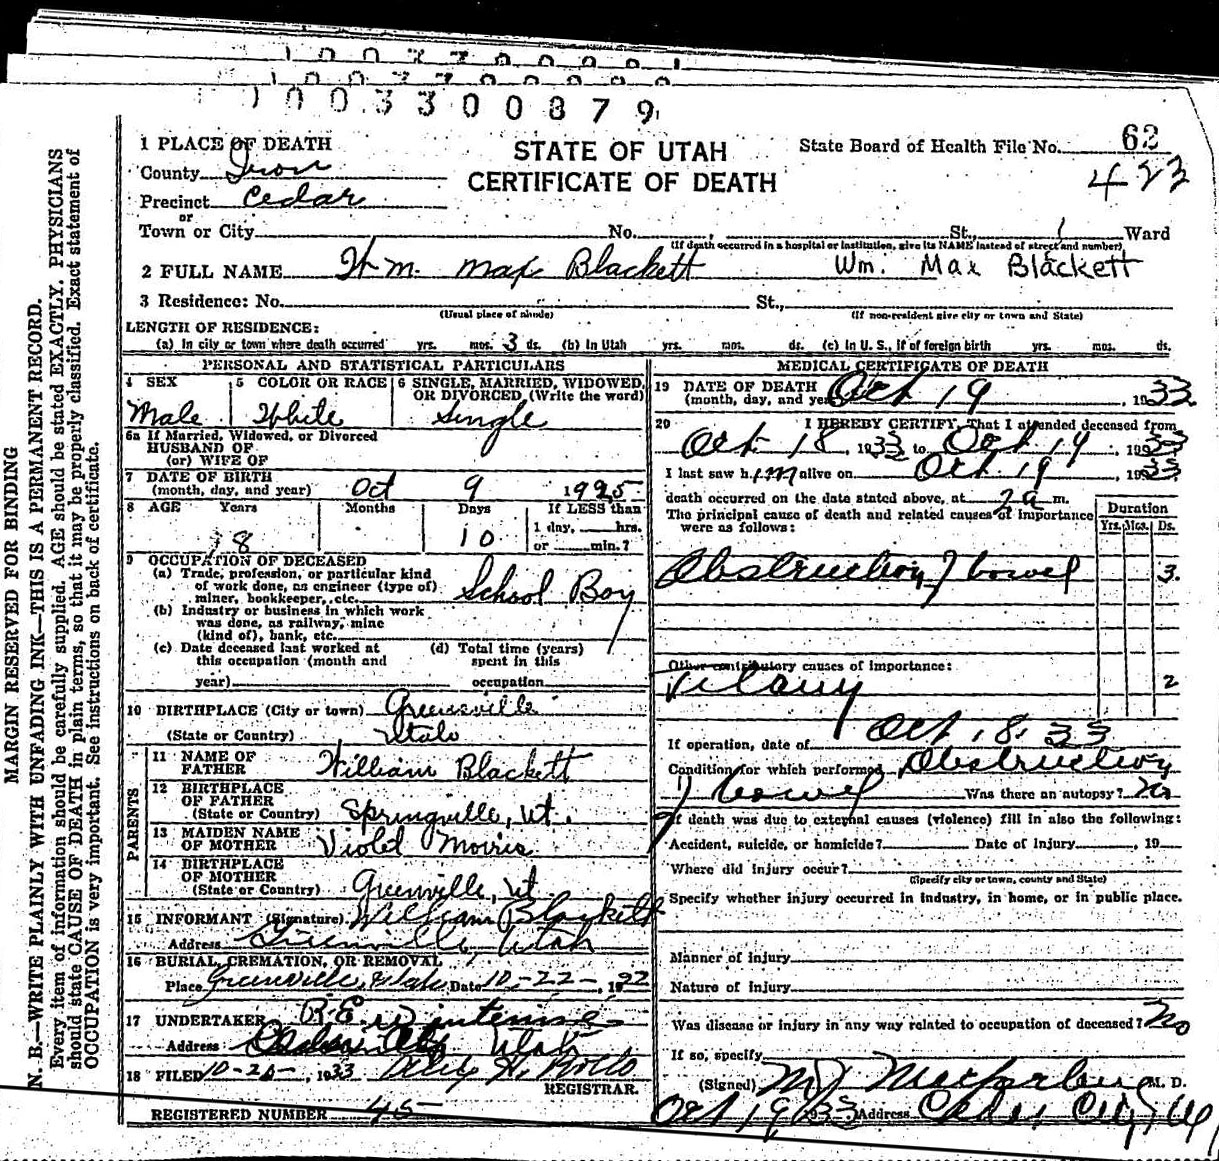 1 0 0 3 3 0 0 8 7 9
1 PLACE OF DEATH
STATE OF UTAH
CERTIFICATE OF DEATH
State Board of Health File No. 62
423
County Iron
Precinct Cedar
or
Town or City No. , St., Ward
(If death occurred in a hospital or institution, give its NAME instead of street and number)
2 FULL NAME Wm. Max Blackett Wm. Max Blackett
3 Residence: No. St.,
(Usual place of abode) (If non-resident give city or town and State)
LENGTH OF RESIDENCE:
(a) In city or town where death occurred yrs. mos. 3 ds. (b) In Utah yrs. mos. ds. (c) In U. S., if of foreign birth yrs. mos. ds.
PERSONAL AND STATISTICAL PARTICULARS
4 SEX
Male
5 COLOR OR RACE
White
6 SINGLE, MARRIED, WIDOWED,
OR DIVORCED, (Write the word)
Single
6a If Married, Widowed, or Divorced
HUSBAND OF
(or) WIFE OF
7 DATE OF BIRTH
(month, day, and year) Oct 9 1925
8 AGE Years Months Days If LESS than
8 10 1 day, hrs.
or min.?
9 OCCUPATION OF DECEASED
(a) Trade, profession, or particular kind
of work done, as engineer (type of)
miner, bookkeeper, etc. School Boy
(b) Industry or business in which work
was done, as railway, mine
(kind of), bank, etc.
(c) Date deceased last worked at
this occupation (month and
year)
(d) Total time (years)
spent in this
occupation
10 BIRTHPLACE (City or town) Greensville
(State or Country) Utah
PARENTS
11 NAME OF
FATHER William Blackett
12 BIRTHPLACE
OF FATHER
(State or Country) Springville, Ut.
13 MAIDEN NAME
OF MOTHER Violet Morris
14 BIRTHPLACE
OF MOTHER
(State or Country) Greenville, Ut
15 INFORMANT (Signature) William Blackett
Address Greenville, Utah
16 BURIAL, CREMATION, OR REMOVAL
Place Greenville, Utah Date 10-22-, 19
17 UNDERTAKER R.E.
Address Utah
18 FILED 10-20-, 1933
REGISTRAR.
REGISTERED NUMBER 45
MEDICAL CERTIFICATE OF DEATH
19 DATE OF DEATH
(month, day, and year) Oct 19 1933
20 I HEREBY CERTIFY, That I attended deceased from
Oct 18, 1933 to Oct 19, 1933
I last saw him alive on Oct 19, 1933
death occurred on the date stated above, at 2 a m.
The principal cause of death and related causes of importance
were as follows:
Duration
Yrs. Mos. Ds.
Obstruction of bowel 3.
Other contributory causes of importance:
2
If operation, date of Oct 18. 33
Condition for which performed Obstruction
of bowel Was there an autopsy? No
If death was due to external causes (violence) fill in also the following:
Accident, suicide, or homicide? Date of injury , 19
Where did injury occur?
(Specify city or town, county and State)
Specify whether injury occurred in industry, in home, or in public place.
Manner of injury
Nature of injury
Was disease or injury in any way related to occupation of deceased? No
If so, specify
(Signed) M. D.
Oct 19 1933 Address Cedar City, Ut
MARGIN RESERVED FOR BINDING
N. B.—WRITE PLAINLY WITH UNFADING INK—THIS IS A PERMANENT RECORD.
Every item of information should be carefully supplied. AGE should be stated EXACTLY. PHYSICIANS
should state CAUSE OF DEATH in plain terms, so that it may be properly classified. Exact statement of
OCCUPATION is very important. See instructions on back of certificate.